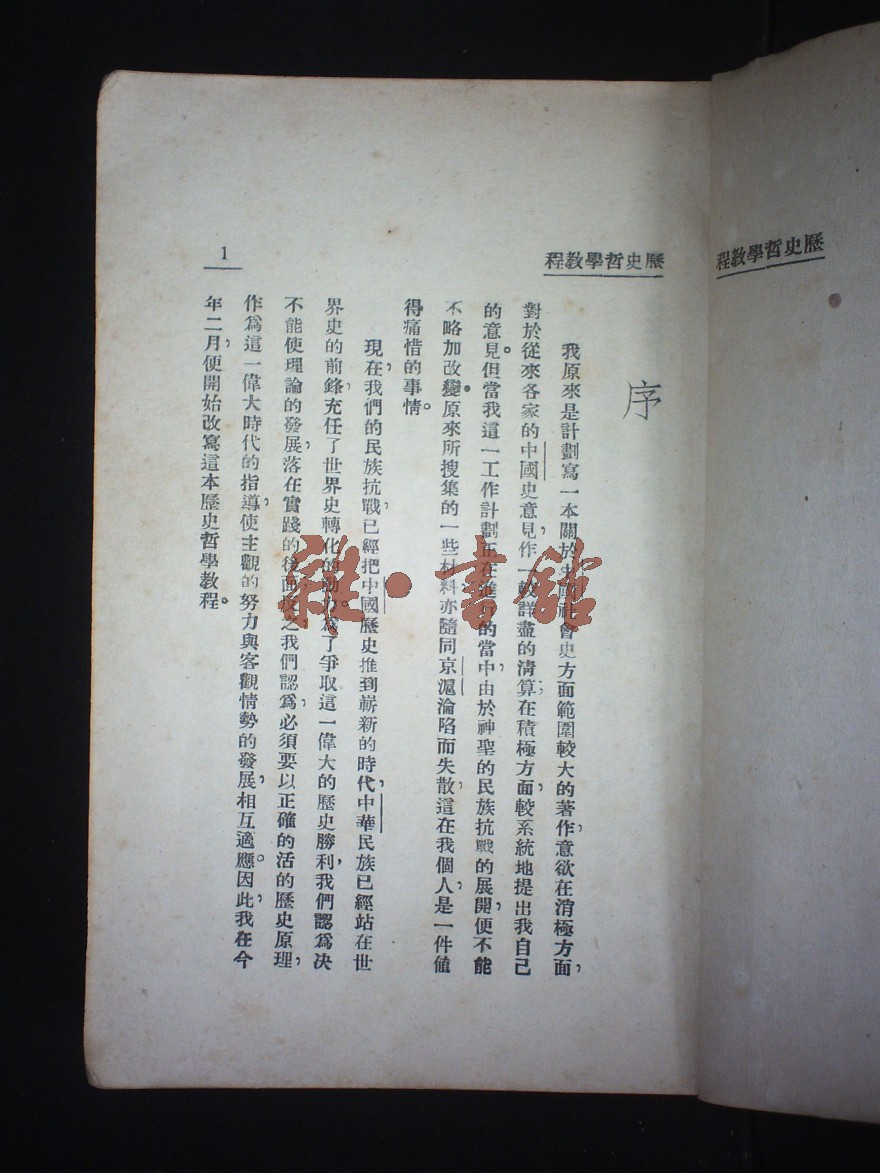 歷史哲學教程
程教學哲史歷
1
序
我原來是計劃寫一本關於中國社會史方面範圍較大的著作，意欲在消極方面，
對於從來各家的中國史意見，作一較詳盡的清算，在積極方面，較系統地提出我自己
的意見。但當我這一工作計劃正在進行的當中，由於神聖的民族抗戰的展開，便不能
不略加改變。原來所搜集的一些材料亦隨同京滬淪陷而失散，這在我個人，是一件値
得痛惜的事情。
現在，我們的民族抗戰，已經把中國歷史推到嶄新的時代，中華民族已經站在世
界史的前鋒，充任了世界史轉化的動力。爲了爭取這一偉大的歷史勝利，我們認爲決
不能使理論的發展，落在實踐的後面，反之，我們認爲，必須要以正確的活的歷史原理，
作爲這一偉大時代的指導，使主觀的努力與客觀情勢的發展，相互適應。因此，我在今
年二月，便開始改寫這本歷史哲學教程。
雜·書館